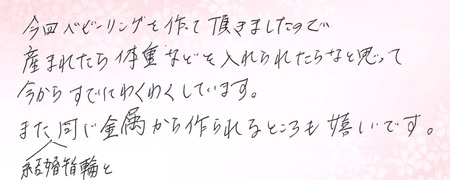 今回ベビーリングを作って頂きましたので
産まれたら体重などを入れられたらなと思って
今からすでにわくわくしています。
また同じ金属から作られるところも嬉しいです。
結婚指輪と